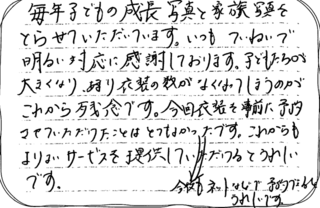 毎年子どもの成長写真と家族写真を
とらせていただいています。いつも ていねいで
明るい対応に感謝しております。子どもたちが
大きくなり、衣装の数がなくなってしまうのが
これから残念です。今回衣装を事前に予約
させていただけたことはとてもよかったです。これからも
よりよいサービスを提供していただけるとうれしい
です。
今後も ネットなどで 予約できれば
うれしいです。